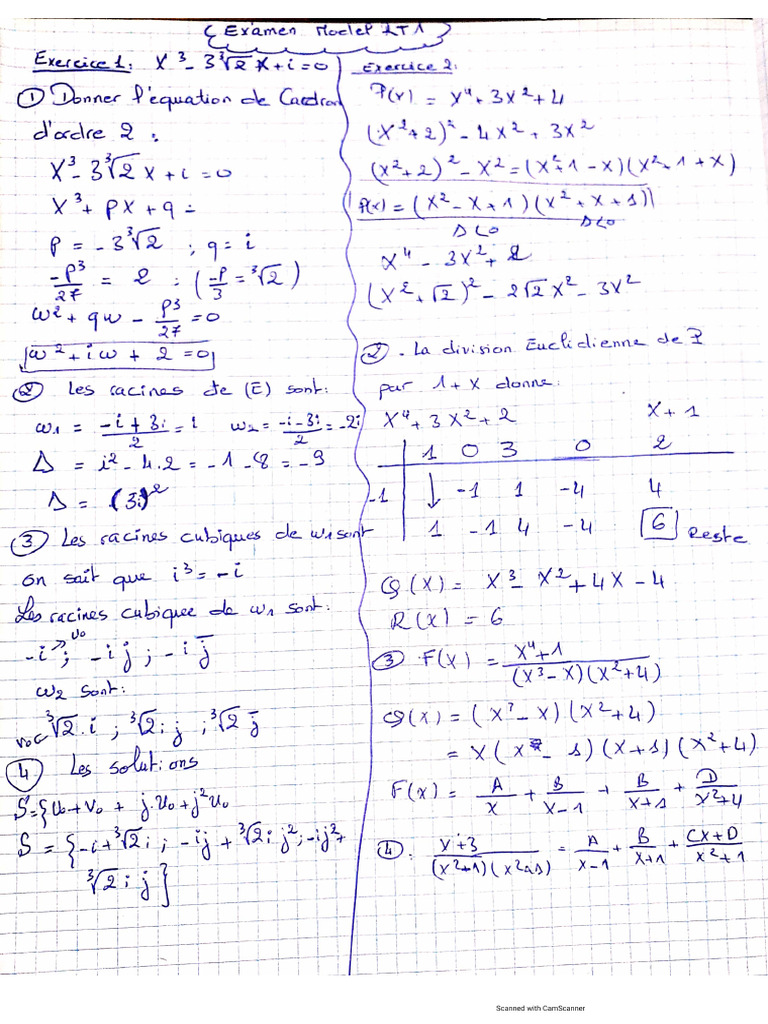 ( Examen Model 2T1 )
Exercice 1: X³ - 3∛2 X + i = 0
① Donner l'équation de Cardran
d'ordre 2 :
X³ - 3∛2 X + i = 0
X³ + pX + q =
p = -3∛2 ; q = i
-p³/27 = 2 ; (-p/3 = ∛2)
w² + qw - p³/27 = 0
w² + iw + 2 = 0
② Les racines de (E) sont:
w1 = (-i + 3i)/2 = i w2 = (-i - 3i)/2 = -2i
Δ = i² - 4.2 = -1 - 8 = -9
Δ = (3i)²
③ Les racines cubiques de w1 sont
on sait que i³ = -i
Les racines cubique de w1 sont:
-i → u0 ; -ij ; -i j̄
w2 sont:
v0 ∛2.i ; ∛2ij ; ∛2 j̄
④ Les solutions
S = {u0 + v0 + j.u0 + j²u0
S = {-i + ∛2i ; -ij + ∛2i j² ; -ij² +
∛2ij}
Exercice 2:
P(x) = x⁴ + 3x² + 4
(x² + 2)² - 4x² + 3x²
(x² + 2)² - x² = (x² + 1 - x)(x² + 1 + x)
P(x) = (x² - x + 1)(x² + x + 1)
Δ<0 Δ<0
x⁴ - 3x² + 2
(x² + √2)² - 2√2x² - 3x²
② - La division Euclidienne de P
par 1 + X donne:
X⁴ + 3X² + 2 X + 1
1 0 3 0 2
-1 ↓ -1 1 -4 4
1 -1 4 -4 6 Reste
Q(X) = X³ - X² + 4X - 4
R(X) = 6
③ F(X) = (X⁴ + 1)/((X³ - X)(X² + 4))
Q(X) = (X³ - X)(X² + 4)
= X(X - 1)(X + 1)(X² + 4)
F(X) = A/X + B/(X-1) + B/(X+1) + D/(X²+4)
④ : (X+3)/((X²+1)(X²-1)) = A/(X-1) + B/(X+1) + (CX+D)/(X²+1)
Scanned with CamScanner